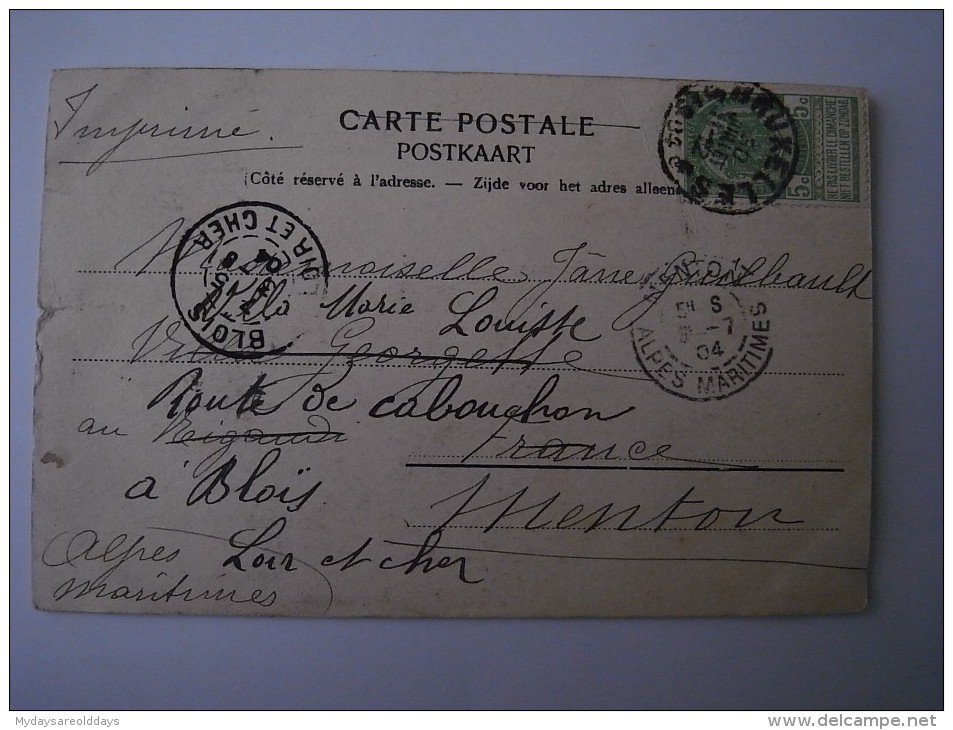 Imprimé.
CARTE POSTALE
POSTKAART
(Côté réservé à l'adresse. — Zijde voor het adres alleen
5c
5c
NE PAS LIVRER LE DIMANCHE
NIET BESTELLEN OP ZONDAG
BRUXELLES
04
BLOIS
LOIR ET CHER
04
MENTON
5E S
-7
04
ALPES MARITIMES
Mademoiselle Jane Guilbault
Villa Marie Louise
Villa Georgette
Route de Cabouchon
au Reigaud
France
à Bloïs.
Menton
Alpes
Loir et Cher
maritimes
Mydaysareolddays
www.delcampe.net